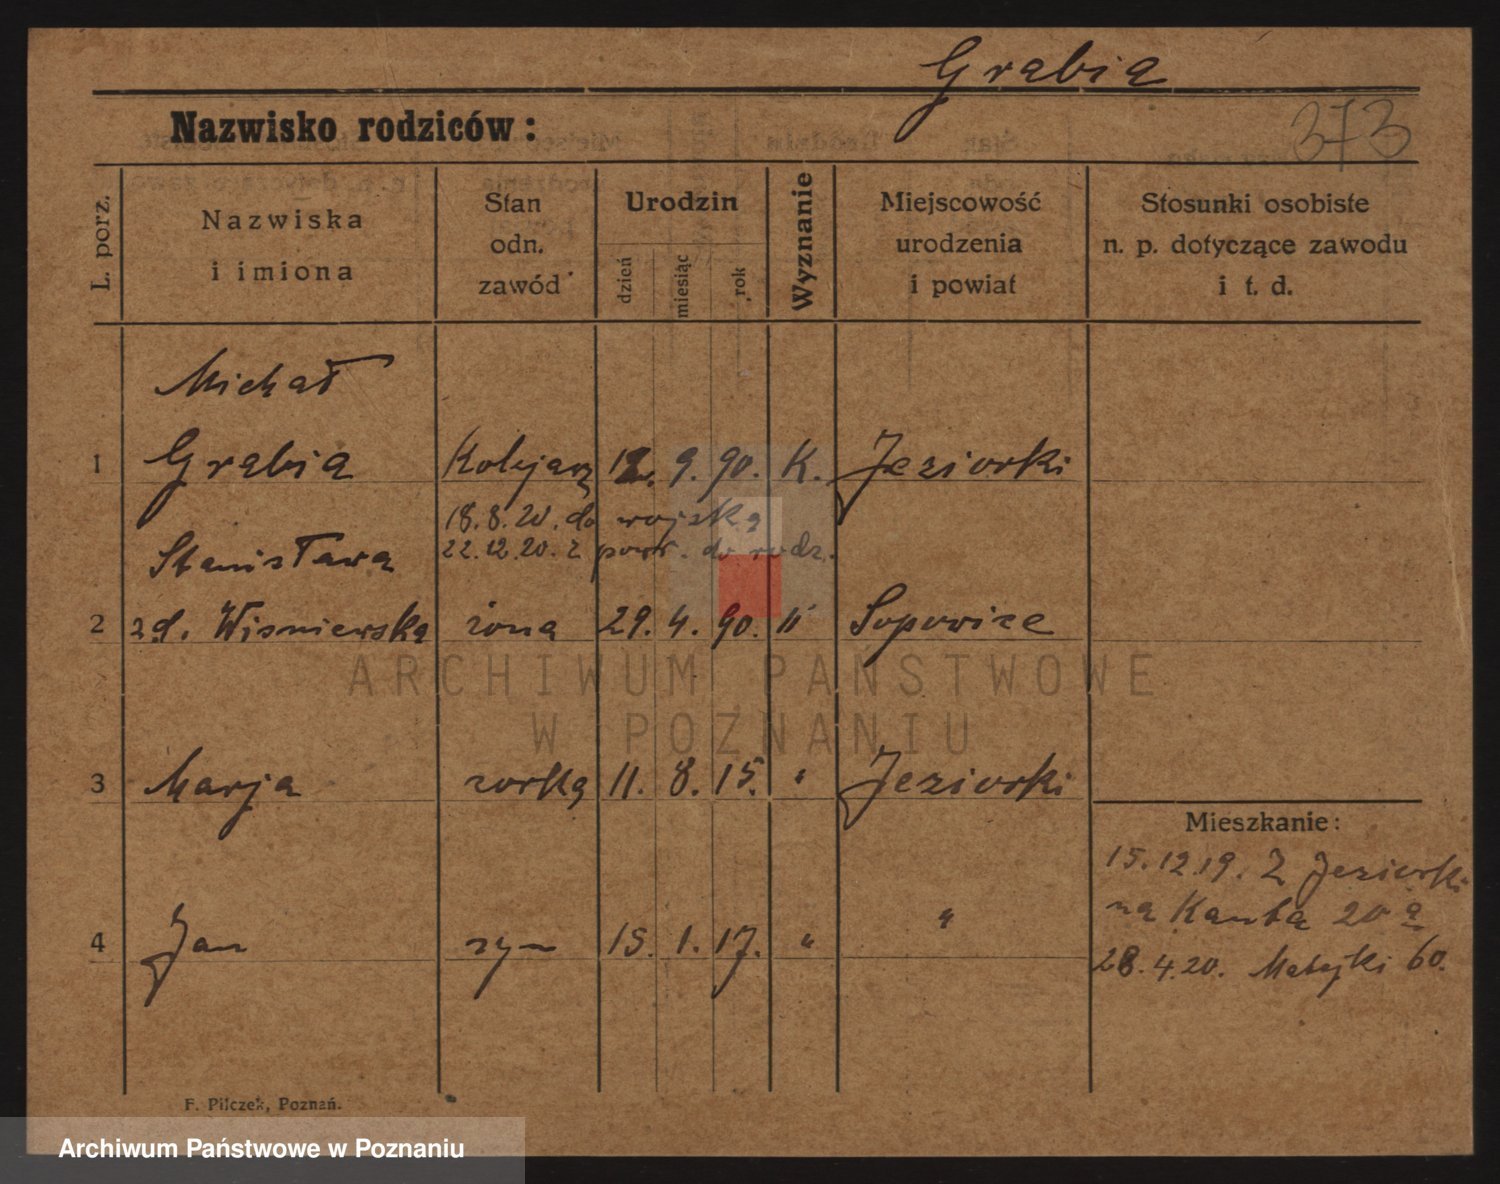 Grabia
373
Nazwisko rodziców:
L. porz.
Nazwiska
i imiona
Stan
odn.
zawód
Urodzin
dzień
miesiąc
rok
Wyznanie
Miejscowość
urodzenia
i powiat
Stosunki osobiste
n. p. dotyczące zawodu
i t. d.
Michał
1 Grabia Kolejarz 12. 9. 90. K. Jeziorki
18.8.20. do wojska
22.12.20. z powr. do rodz.
Stanisława
2 zd. Wisniewska żona 29. 4. 90. " Sopowice
3 Marja corka 11. 8. 15. " Jeziorki
Mieszkanie:
15.12.19. Z Jeziorki
na Kanta 20 a
4 Jan syn 15. 1. 17. " "
28.4.20. Matejki 60.
F. Pilczek, Poznań.
ARCHIWUM PAŃSTWOWE
W POZNANIU
Archiwum Państwowe w Poznaniu